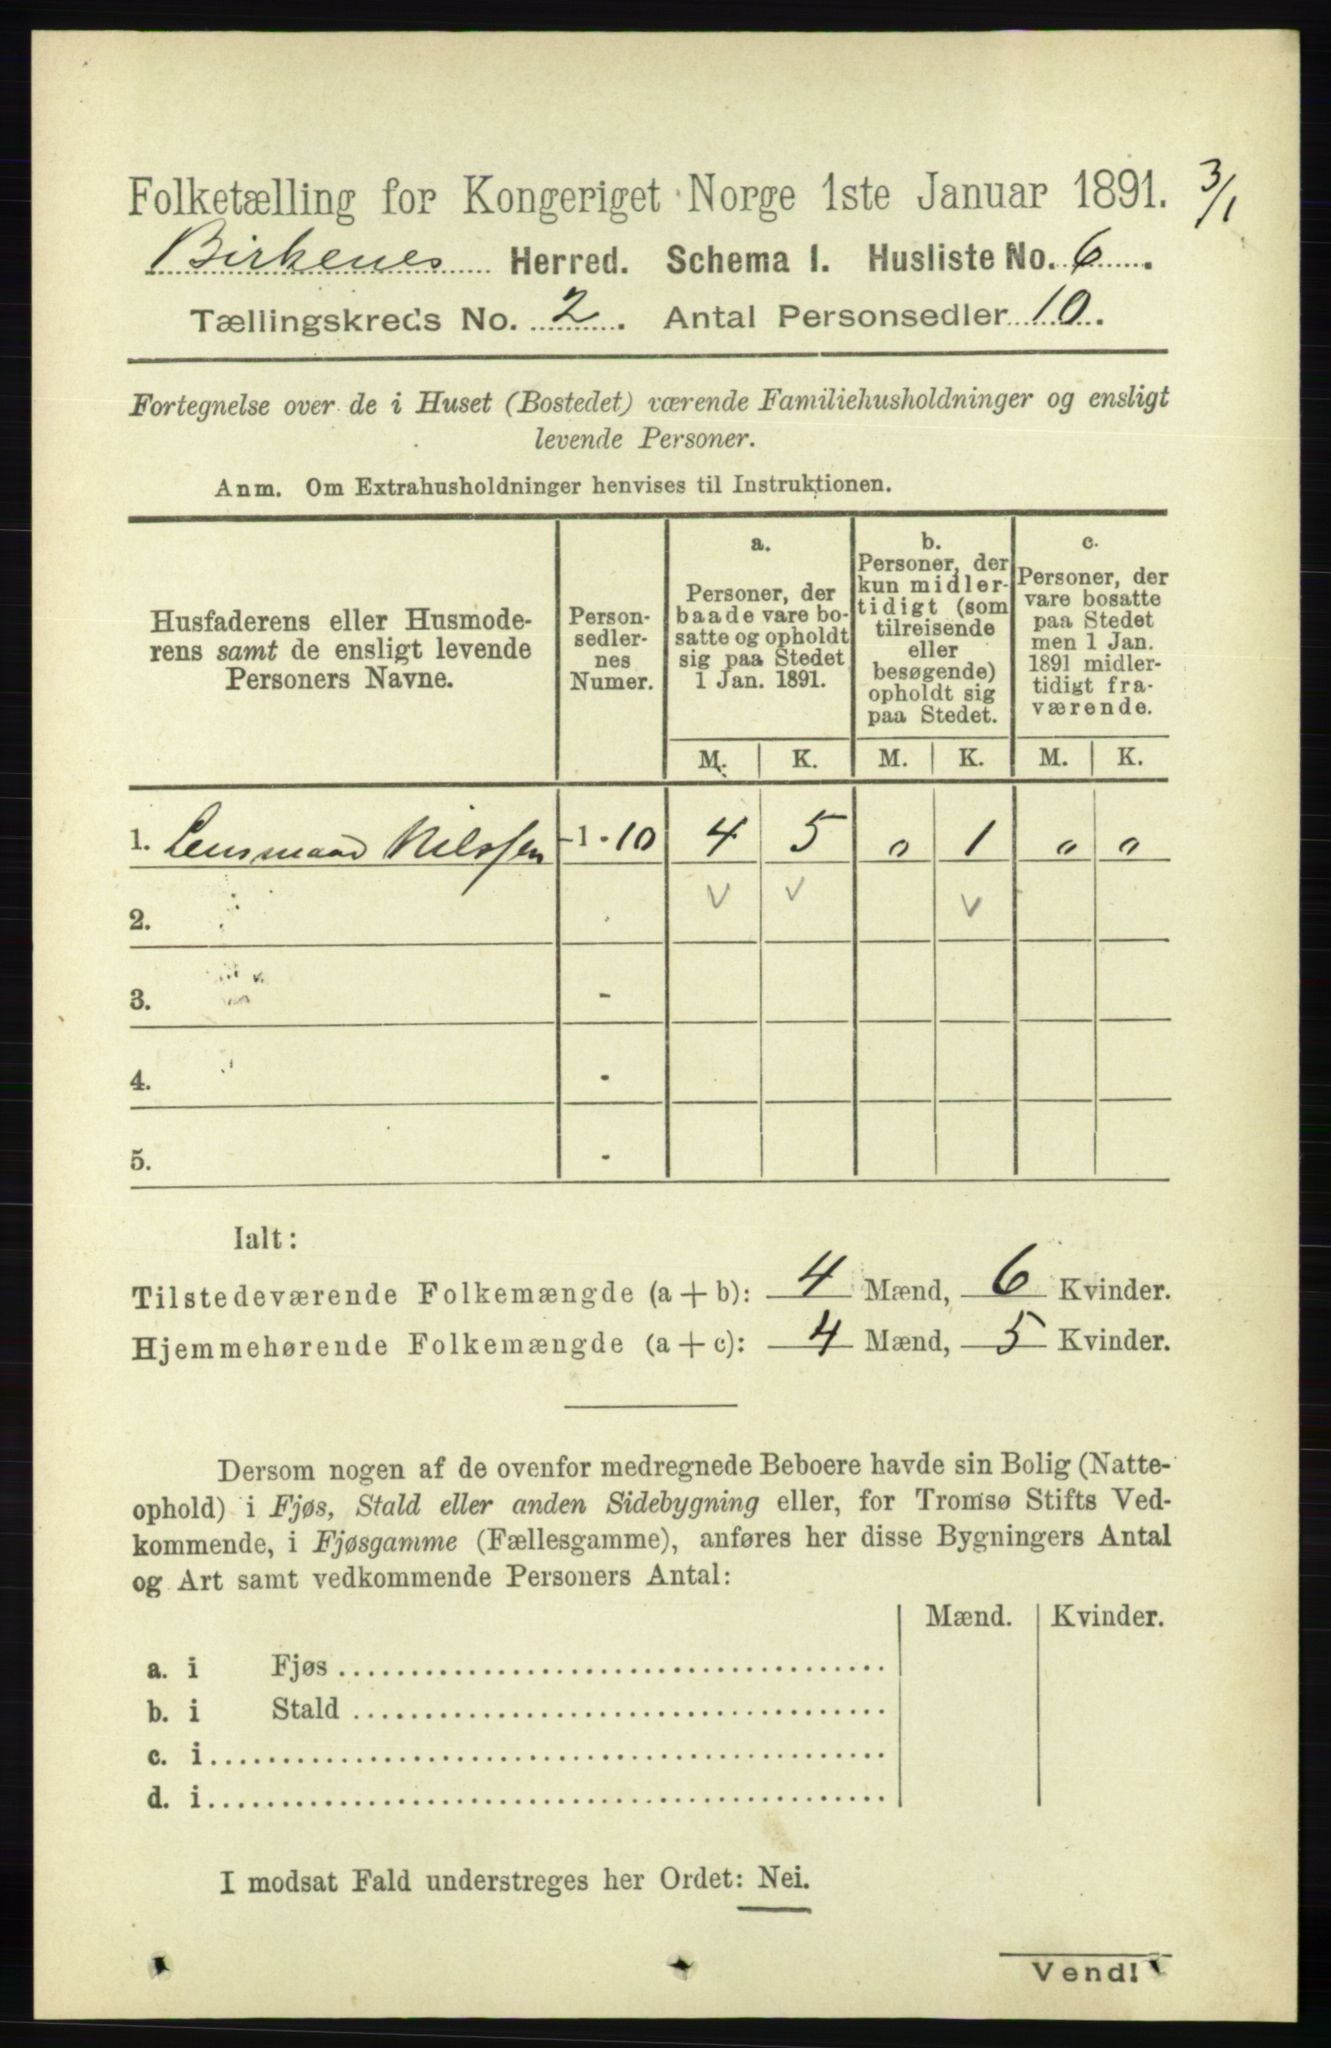 Folketælling for Kongeriget Norge 1ste Januar 1891. 3/1
Birkenes Herred. Schema I. Husliste No. 6.
Tællingskreds No. 2. Antal Personsedler 10.
Fortegnelse over de i Huset (Bostedet) værende Familiehusholdninger og ensligt
levende Personer.
Anm. Om Extrahusholdninger henvises til Instruktionen.
Husfaderens eller Husmode-
rens samt de ensligt levende
Personers Navne.
Person-
sedler-
nes
Numer.
a.
Personer, der
baade vare bo-
satte og opholdt
sig paa Stedet
1 Jan. 1891.
b.
Personer, der
kun midler-
tidigt (som
tilreisende
eller
besøgende)
opholdt sig
paa Stedet.
c.
Personer, der
vare bosatte
paa Stedet
men 1 Jan.
1891 midler-
tidigt fra-
værende.
M. K. M. K. M. K.
1. Lensmand Nilssen 1 - 10 4 5 " 1 " "
2.
3. -
4. -
5. -
Ialt:
Tilstedeværende Folkemængde (a + b): 4 Mænd, 6 Kvinder.
Hjemmehørende Folkemængde (a + c): 4 Mænd, 5 Kvinder.
Dersom nogen af de ovenfor medregnede Beboere havde sin Bolig (Natte-
ophold) i Fjøs, Stald eller anden Sidebygning eller, for Tromsø Stifts Ved-
kommende, i Fjøsgamme (Fællesgamme), anføres her disse Bygningers Antal
og Art samt vedkommende Personers Antal:
Mænd. Kvinder.
a. i Fjøs
b. i Stald
c. i
d. i
I modsat Fald understreges her Ordet: Nei.
Vend!